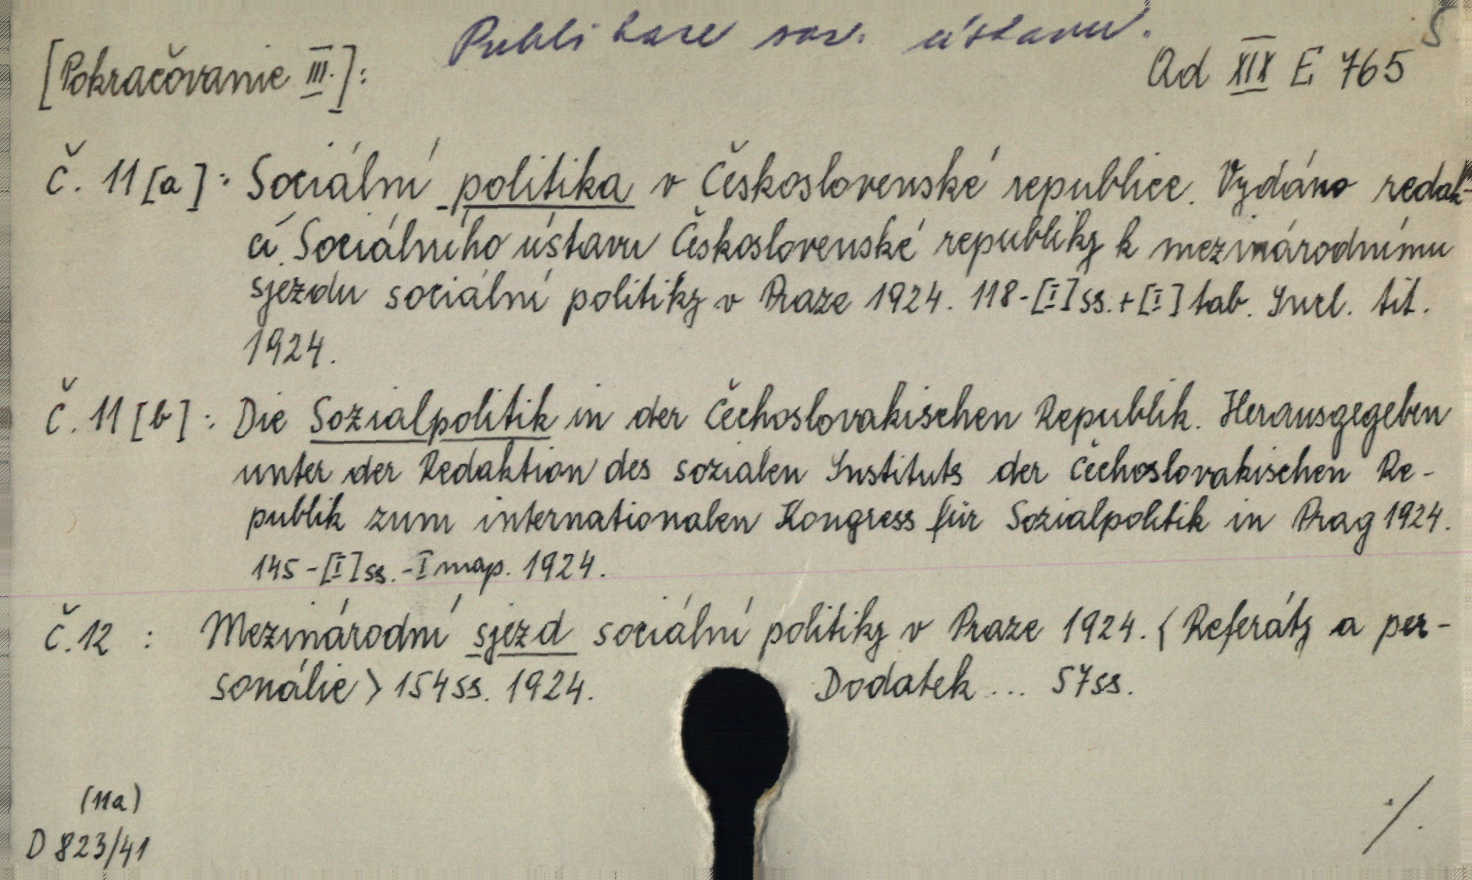 Publikace soc. ústavu. 5
[Pokračovanie III.]: Ad XIX E 765
Č. 11[a]: Sociální politika v Československé republice. Vydáno redak-
cí Sociálního ústavu Československé republiky k mezinárodnímu
sjezdu sociální politiky v Praze 1924. 118-[I] ss.+[I] tab. Incl. tit.
1924.
Č. 11[b]: Die Sozialpolitik in der Čechoslovakischen Republik. Herausgegeben
unter der Redaktion des sozialen Instituts der čechoslovakischen Re-
publik zum internationalen Kongress für Sozialpolitik in Prag 1924.
145-[I] ss.-I map. 1924.
Č. 12 : Mezinárodní sjezd sociální politiky v Praze 1924. <Referáty a per-
sonálie> 154 ss. 1924. Dodatek... 57 ss.
(11a)
D 823/41 ./.